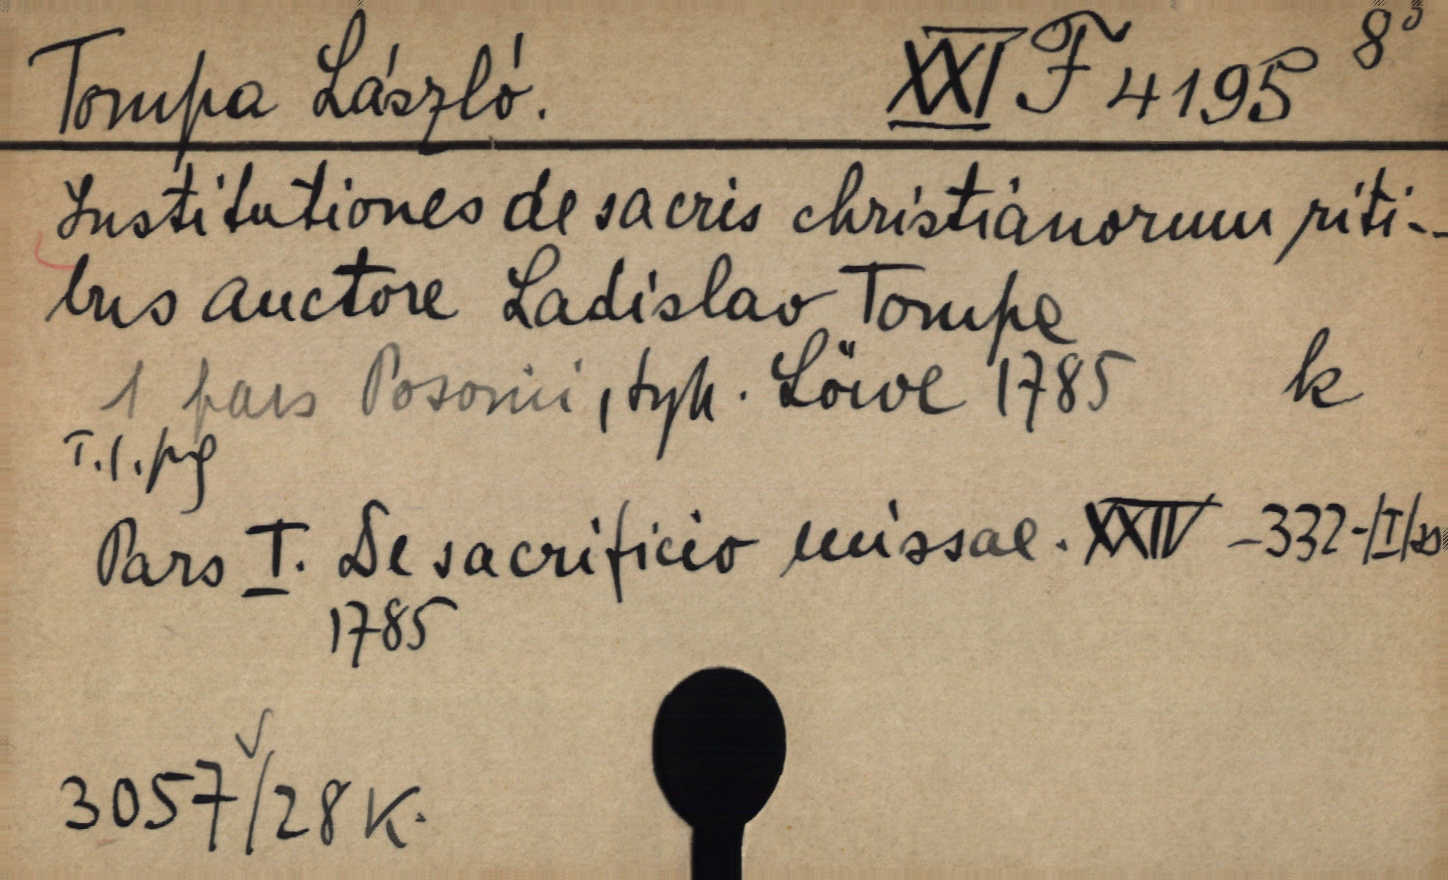 Tompa László. XXI F 4195 8°
Institutiones de sacris christianorum riti-
bus auctore Ladislao Tompe
1 pars Posonii, typ. Löwe 1785 k
T.1.pg
Pars I. De sacrificio missae. XXIV -332-/I/
1785
3057/28 K.